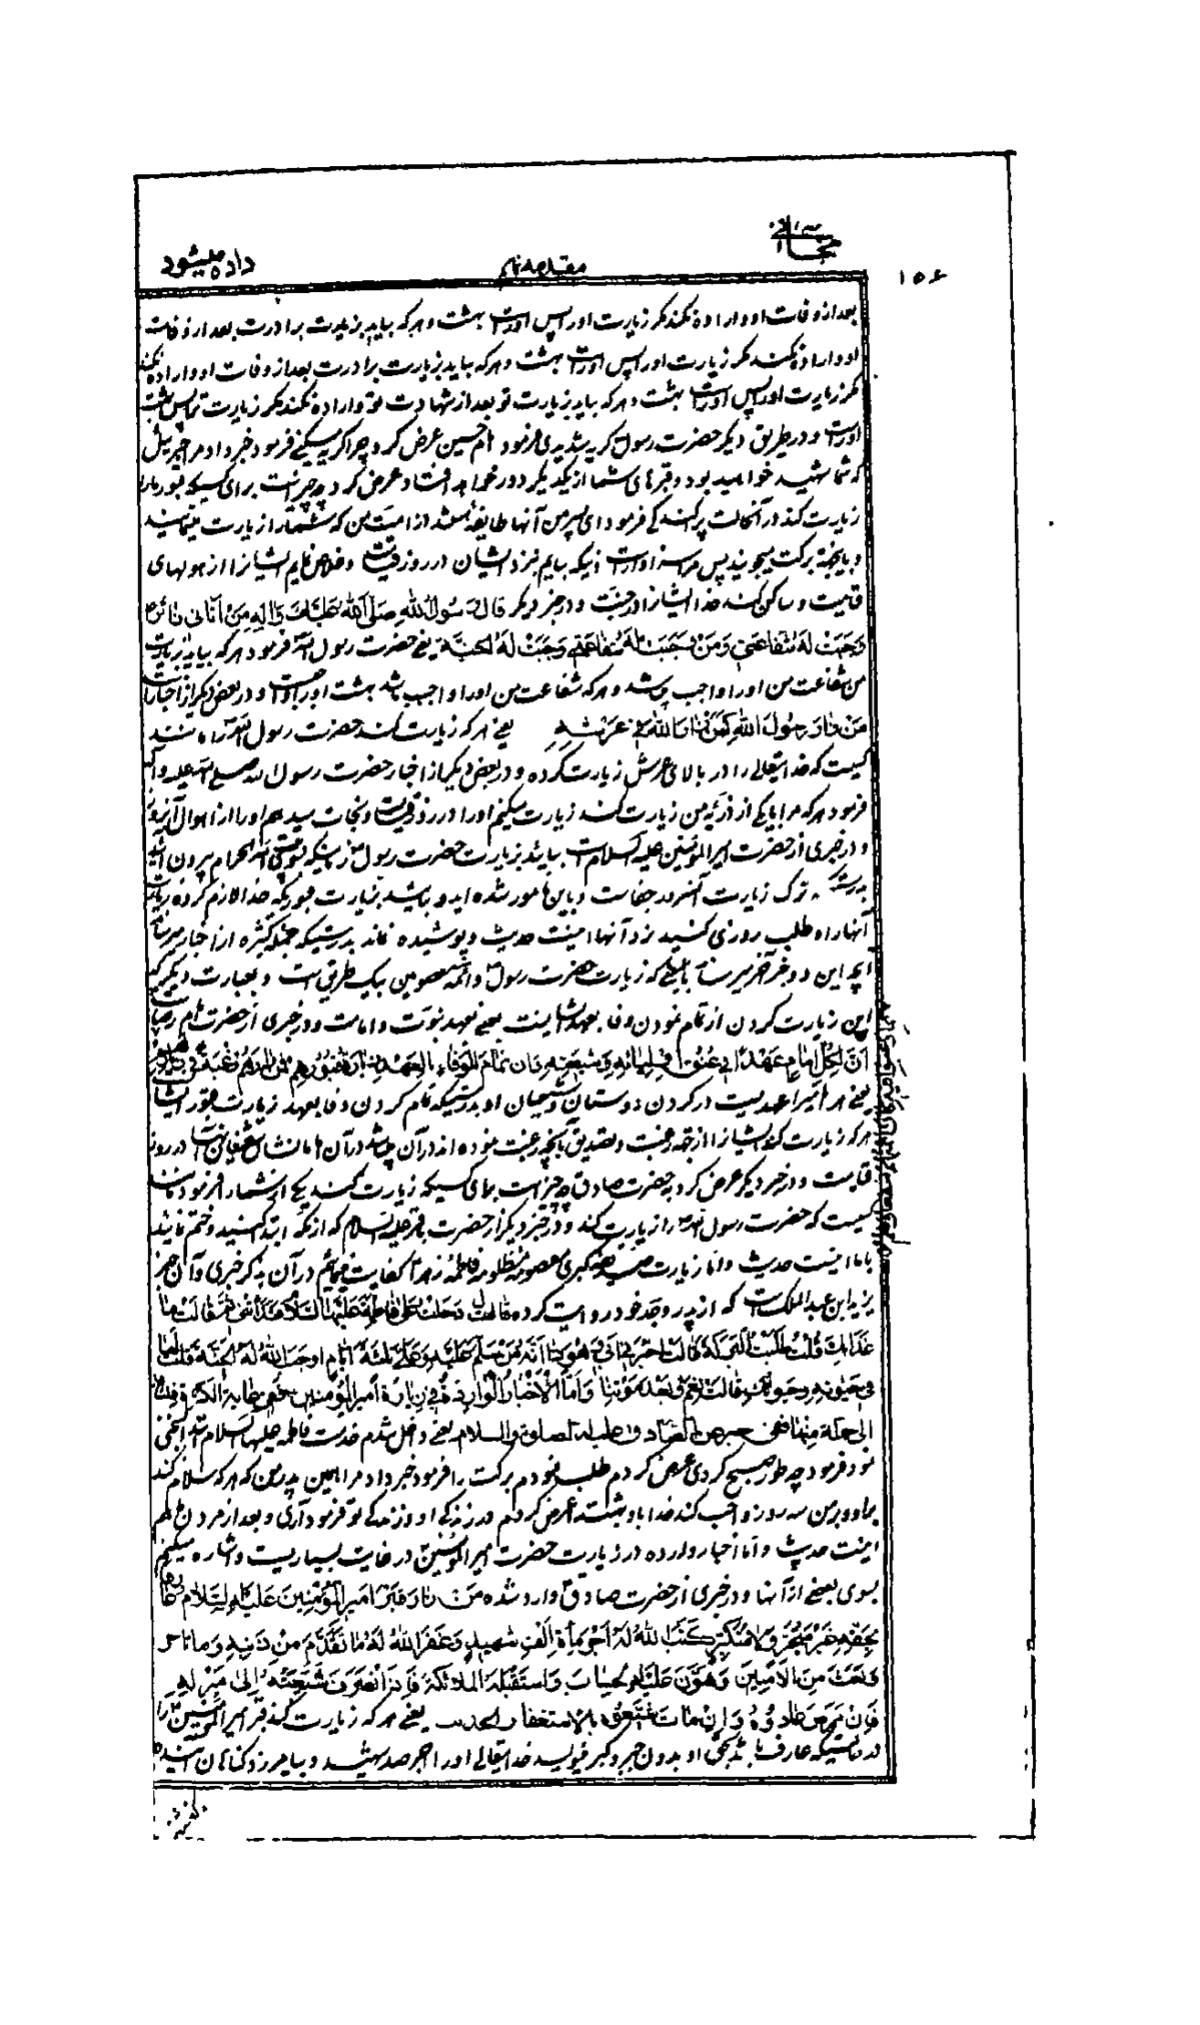 ۱۵۶
مجانی
مقدمه
داده میشود
بعد از وفات او و اراده نکند مگر زیارت او را پس او راست بهشت و هر که بیاید بزیارت برادرت بعد از وفات
او و اراده نکند مگر زیارت او را پس او راست بهشت و هر که بیاید بزیارت برادرت بعد از وفات او و اراده نکند
مگر زیارت او را پس او راست بهشت و هر که بیاید بزیارت تو بعد از شهادت تو و اراده نکند مگر زیارت ترا پس بهشت
او راست و در طریق دیگر حضرت رسول گریه شدیدی فرمود امام حسین عرض کرد چرا گریه میکنی فرمود خبر داد مرا جبرئیل
که شما شهید خواهید بود و قبرهای شما از یکدیگر دور خواهد افتاد عرض کرد چه چیز است برای کسیکه قبور ما را
زیارت کند در آنحالت پراکندگی فرمود ای پسر من آنها طایفهٔ باشند از امت من که شما را از زیارت مینمایند
و باینجهة برکت میجویند پس مرا سزاوار است اینکه بیایم نزد ایشان در روز قیامت و خلاص نمایم ایشانرا از هولهای
قیامت و ساکن کند خدا ایشانرا در جنت و در خبر دیگر قال رسول الله صلی الله علیه و اله من اتانی زائرا
وجبت له شفاعتی ومن وجبت له شفاعتی وجبت له الجنة یعنی حضرت رسول الله فرمود هر که بیاید بزیارت
من شفاعت من او را واجب باشد و هر که شفاعت من او را واجب باشد بهشت او را واجب است و در بعض دیگر از اخبار است
من زار رسول الله کمن زار الله فی عرشه یعنی هر که زیارت کند حضرت رسول الله را مانند
کسیست که خدایتعالی را در بالای عرش زیارت کرده و در بعض دیگر از اخبار حضرت رسول الله صلی الله علیه و آله
فرمود هر که مرا یا یکی از ذریهٔ من زیارت کند زیارت میکنم او را در روز قیامت و نجات میدهم او را از اهوال آنروز
و در خبری از حضرت امیر المؤمنین علیه السلام است بیائید بزیارت حضرت رسول زمانیکه از بیت الله الحرام بیرون آئید
بدرستیکه ترک زیارت آنسرور جفاست و باین مأمور شده اید و بیائید بزیارت قبوریکه خدا لازم کرده زیارت
آنها را و طلب روزی کنید نزد آنها اینست حدیث و پوشیده نماند بدرستیکه جملهٔ کثیره از اخبار میرساند
آنچه این دو خبر آخر میرساند باینطوریکه زیارت حضرت رسول و ائمه معصومین بیک طریق است و بعبارت دیگر
این زیارت کردن از تمام نمودن وفا بعهد ایشانست یعنی بعهد نبوت و امامت و در خبری از حضرت امام رضا
ان لکل امام عهدا فی عنق اولیائه وشیعته وان تمام الوفاء بالعهد زیارة قبورهم فمن زارهم رغبة فی
یعنی هر امامیرا عهدیست در گردن دوستان و شیعیان او بدرستیکه تمام کردن وفا بعهد زیارت قبور ایشان
هر که زیارت کند ایشانرا از جهة رغبت و تصدیق بآنچه رغبت نموده اند در آن باشند در آن امامان شفیعان در روز
قیامت و در خبر دیگر عرض کرد بحضرت صادق چه چیز است برای کسیکه زیارت کند یکی از شما را فرمود مانند
کسیست که حضرت رسول الله را زیارت کند و در خبر دیگر از حضرت باقر علیه السلام که از مکه ابتدا کنید و ختم نمائید
بما اینست حدیث و اما زیارت صدیقه کبری معصومه مظلومه فاطمه زهرا کفایت مینمائیم در آن بذکر خبری و آن خبر
یزید ابن عبد الملک است که از پدر و جد خود روایت کرده قال دخلت علی فاطمة علیها السلام فقالت ما
غدا بک قلت طلب البرکة قالت اخبرنی ابی هو ذا انه من سلم علیه وعلی ثلثة ایام اوجب الله له الجنة قلت لها
فی حیوته وحیوتک قالت نعم وبعد موتنا واما الاخبار الواردة فی زیارة امیر المؤمنین
الی جملة منها ففی خبر عن الصادق علیه الصلوة والسلام یعنی داخل شدم خدمت فاطمه علیها السلام
نمود فرمود چه طور صبح کردی عرض کردم طلب نمودم برکت را فرمود خبر داد مرا همین پدر من که هر که سلام کند
بر او و بر من سه روز واجب کند خدا باو بهشت عرض کردم در زندگی او و زندگی تو فرمود آری و بعد از مردن هم
اینست حدیث و اما اخبار وارده در زیارت حضرت امیر المؤمنین در غایت بسیاریست و اشاره میکنیم
بسوی بعضی از آنها و در خبری از حضرت صادق وارد شده من زار قبر امیر المؤمنین علیه السلام عارفا
بحقه غیر متجبر ولا متکبر کتب الله له اجر مأة الف شهید وغفر الله له ما تقدم من ذنبه وما تاخر
وبعث من الامنین وهون علیه الحساب واستقبله الملائکة فاذا انصرف شیعته الی منزله
فان مرض عادوه وان مات تبعوه بالاستغفار الحدیث یعنی هر که زیارت کند قبر امیر المؤمنین را
در حالتیکه عارف باشد بحق او بدون جبر و کبر بنویسد خدایتعالی او را اجر صد شهید و بیامرزد گناهان